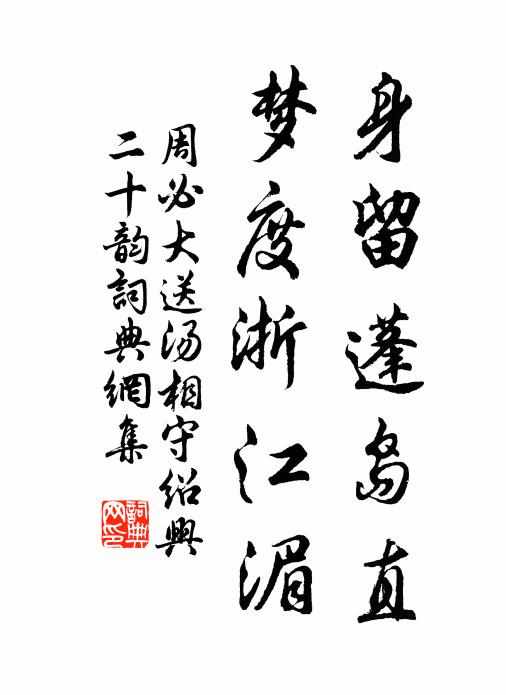 身留蓬岛直
梦度浙江湄
周必大送汤相守绍興
二十韵詞典網集
詞典网印